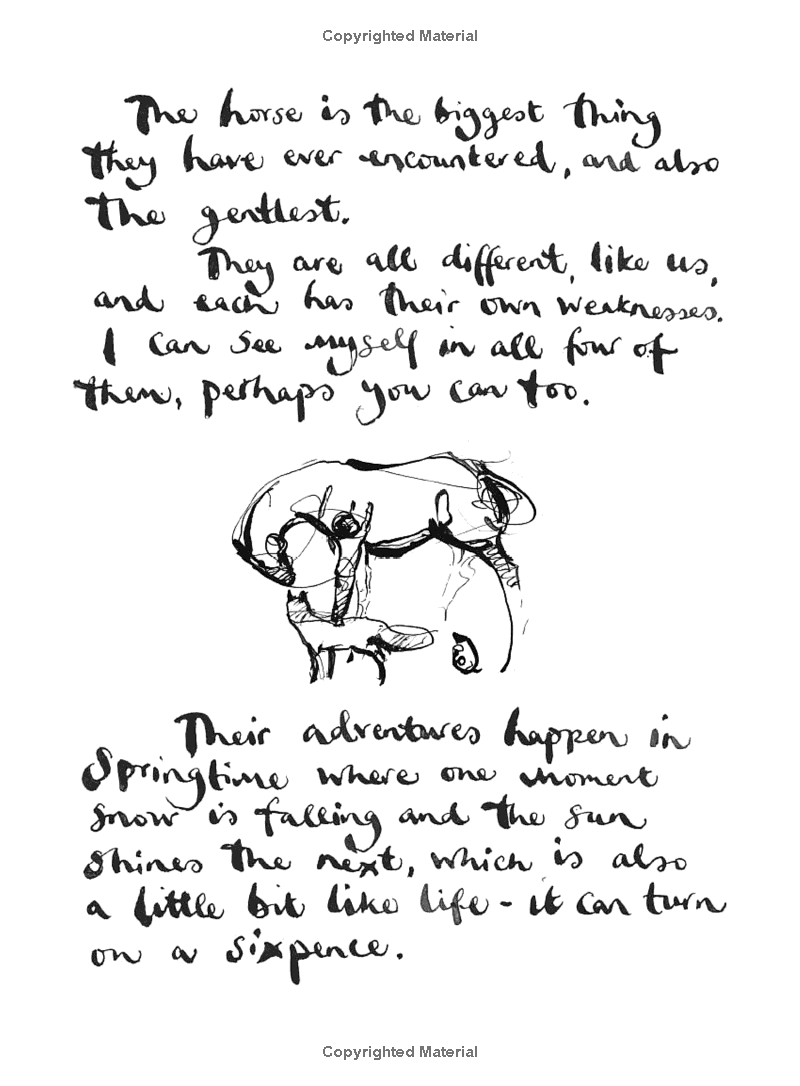 Copyrighted Material
The horse is the biggest thing
they have ever encountered, and also
the gentlest.
They are all different, like us,
and each has their own weaknesses.
I can see myself in all four of
them, perhaps you can too.
Their adventures happen in
Springtime where one moment
snow is falling and the sun
shines the next, which is also
a little bit like life - it can turn
on a sixpence.
Copyrighted Material